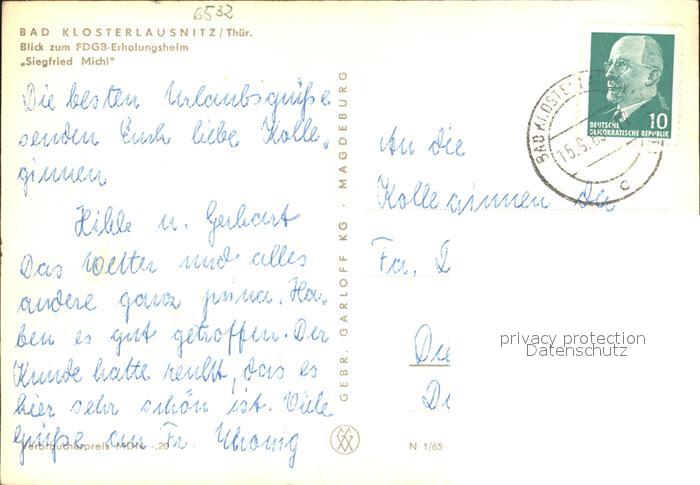 6532
BAD KLOSTERLAUSNITZ/Thür.
Blick zum FDGB-Erholungsheim
„Siegfried Michl"
Die besten Urlaubsgrüße
senden Euch liebe Kolle-
ginnen
Hilde u. Gerhart
Das Wetter und alles
andere ganz prima. Ha-
ben es gut getroffen. Der
Kunde hatte recht, das es
hier sehr schön ist. Viele
Grüße an Fr.
Verbraucherpreis MDN -,20
GEBR. GARLOFF KG · MAGDEBURG
DEUTSCHE
DEMOKRATISCHE REPUBLIK
10
BAD KLOSTERL
15.9.65
c
An die
Kolleginnen der
Fa. D
privacy protection
Datenschutz
N 1/65